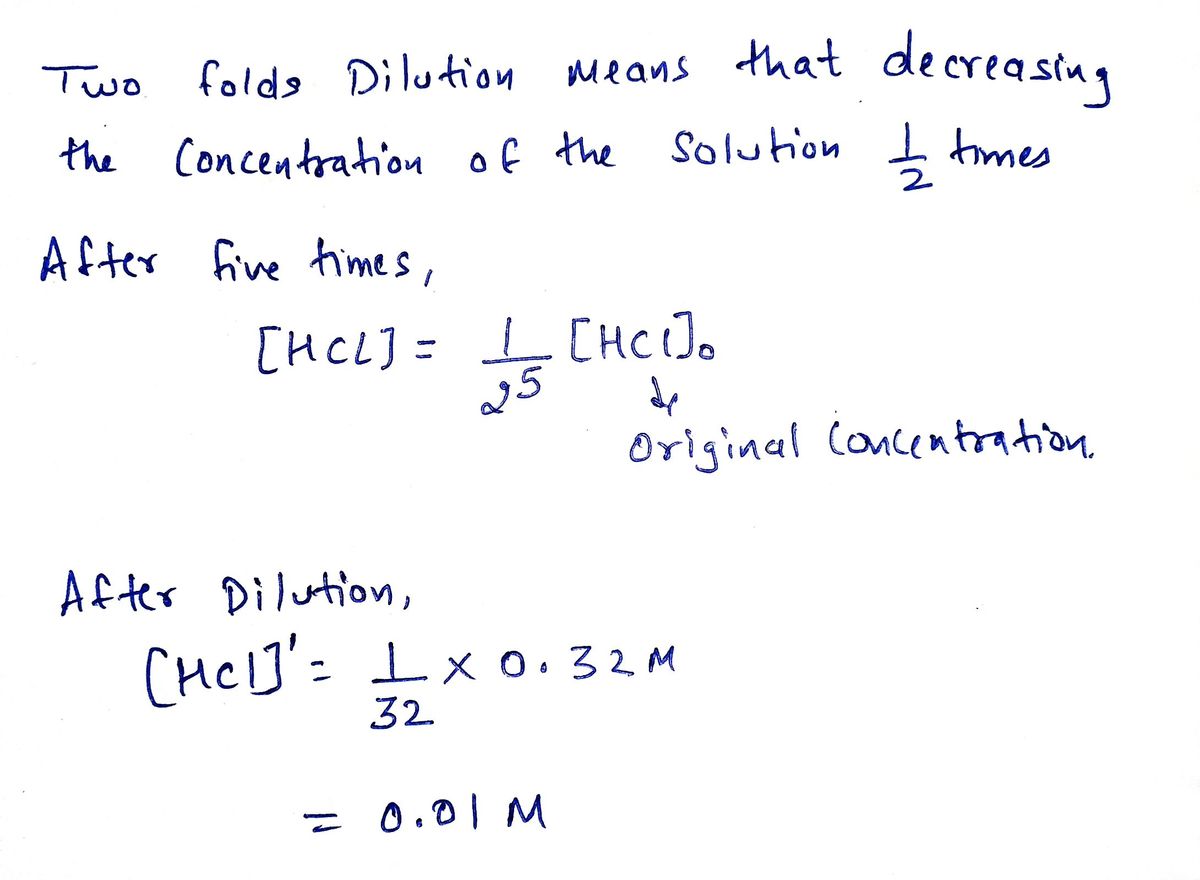 Two folds Dilution means that decreasing
the Concentration of the Solution 1/2 times
After five times,
[HCL] = 1/2^5 [HCl]₀
↓
Original Concentration.
After Dilution,
[HCl]' = 1/32 × 0.32 M
= 0.01 M